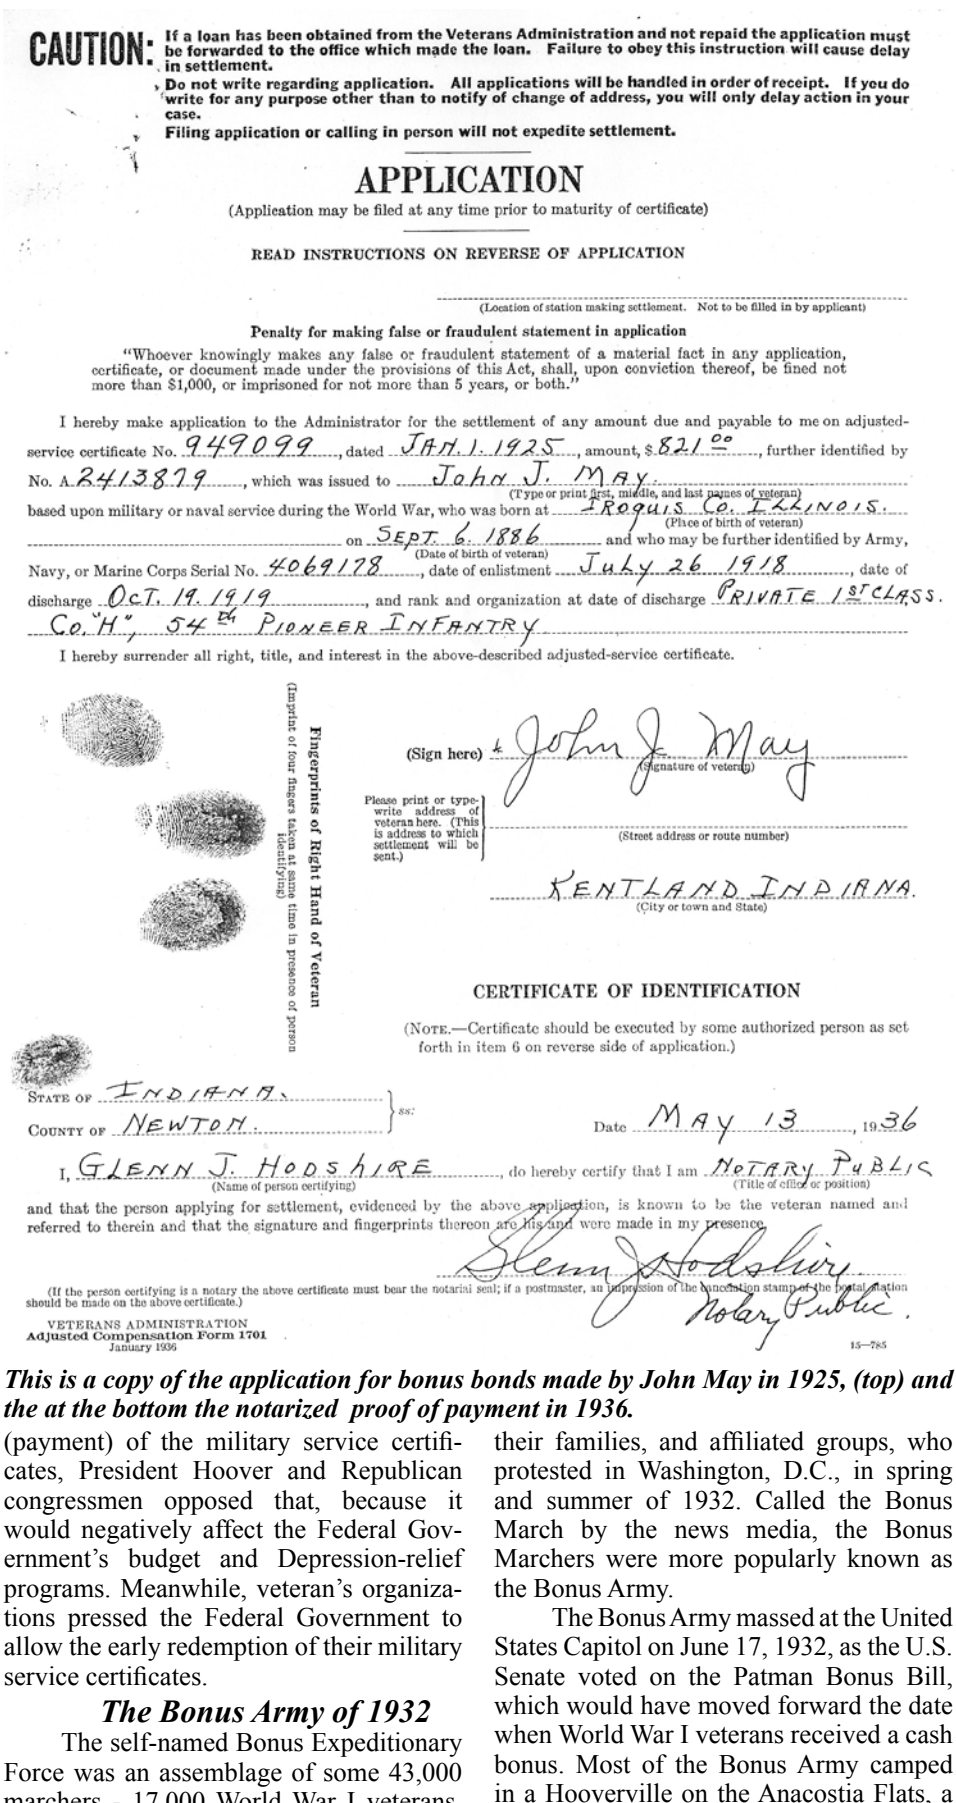 CAUTION: If a loan has been obtained from the Veterans Administration and not repaid the application must
be forwarded to the office which made the loan. Failure to obey this instruction will cause delay
in settlement.
Do not write regarding application. All applications will be handled in order of receipt. If you do
write for any purpose other than to notify of change of address, you will only delay action in your
case.
Filing application or calling in person will not expedite settlement.
APPLICATION
(Application may be filed at any time prior to maturity of certificate)
READ INSTRUCTIONS ON REVERSE OF APPLICATION
(Location of station making settlement. Not to be filled in by applicant)
Penalty for making false or fraudulent statement in application
"Whoever knowingly makes any false or fraudulent statement of a material fact in any application,
certificate, or document made under the provisions of this Act, shall, upon conviction thereof, be fined not
more than $1,000, or imprisoned for not more than 5 years, or both."
I hereby make application to the Administrator for the settlement of any amount due and payable to me on adjusted-
service certificate No. 949099, dated JAN. 1. 1925, amount, $ 821 00, further identified by
No. A 2413879, which was issued to John J. MAY.
(Type or print first, middle, and last names of veteran)
based upon military or naval service during the World War, who was born at IROQUIS Co. ILLINOIS.
(Place of birth of veteran)
on SEPT. 6. 1886 and who may be further identified by Army,
(Date of birth of veteran)
Navy, or Marine Corps Serial No. 4069178, date of enlistment July 26 1918, date of
discharge OCT. 19. 1919, and rank and organization at date of discharge PRIVATE 1ST CLASS.
Co. "H", 54th PIONEER INFANTRY
I hereby surrender all right, title, and interest in the above-described adjusted-service certificate.
Fingerprints of Right Hand of Veteran
(Imprint of four fingers taken at same time in presence of person
identifying)
(Sign here) John J. May
(Signature of veteran)
Please print or type-
write address of
veteran here. (This
is address to which
settlement will be
sent.)
(Street address or route number)
KENTLAND INDIANA.
(City or town and State)
CERTIFICATE OF IDENTIFICATION
(NOTE.—Certificate should be executed by some authorized person as set
forth in item 6 on reverse side of application.)
STATE OF INDIANA.
COUNTY OF NEWTON.
ss:
Date MAY 13, 1936
I, GLENN J. HODSHIRE, do hereby certify that I am NOTARY PUBLIC
(Name of person certifying) (Title of office or position)
and that the person applying for settlement, evidenced by the above application, is known to be the veteran named and
referred to therein and that the signature and fingerprints thereon are his and were made in my presence.
Glenn J Hodshire
Notary Public.
(If the person certifying is a notary the above certificate must bear the notarial seal; if a postmaster, an impression of the cancelation stamp of the postal station
should be made on the above certificate.)
VETERANS ADMINISTRATION
Adjusted Compensation Form 1701
January 1936
15—785
This is a copy of the application for bonus bonds made by John May in 1925, (top) and
the at the bottom the notarized proof of payment in 1936.
(payment) of the military service certifi-
cates, President Hoover and Republican
congressmen opposed that, because it
would negatively affect the Federal Gov-
ernment's budget and Depression-relief
programs. Meanwhile, veteran's organiza-
tions pressed the Federal Government to
allow the early redemption of their military
service certificates.
The Bonus Army of 1932
The self-named Bonus Expeditionary
Force was an assemblage of some 43,000
marchers - 17,000 World War I veterans,
their families, and affiliated groups, who
protested in Washington, D.C., in spring
and summer of 1932. Called the Bonus
March by the news media, the Bonus
Marchers were more popularly known as
the Bonus Army.
The Bonus Army massed at the United
States Capitol on June 17, 1932, as the U.S.
Senate voted on the Patman Bonus Bill,
which would have moved forward the date
when World War I veterans received a cash
bonus. Most of the Bonus Army camped
in a Hooverville on the Anacostia Flats, a